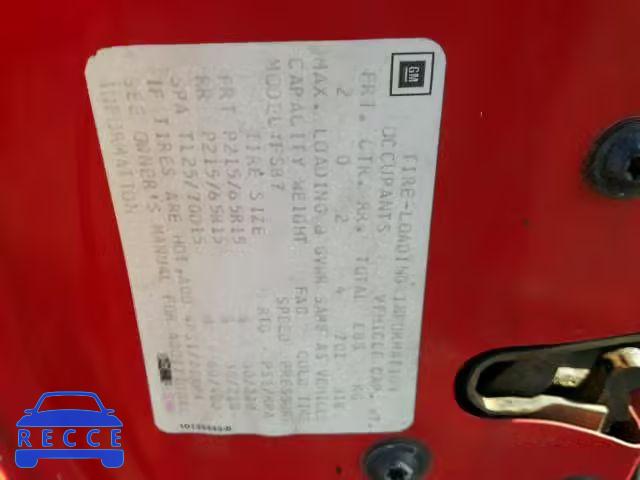 GM
TIRE-LOADING INFORMATION
OCCUPANTS VEHICLE CAP. WT.
FRT. CTR. RR. TOTAL LBS KG
2 0 2 4 701 318
MAX. LOADING @ GVWR SAME AS VEHICLE
CAPACITY WEIGHT FAO COLD TIRE
MODEL:FS87 SPEED PRESSURE
TIRE SIZE RTG PSI/KPA
FRT P215/65R15 S
RR P215/65R15 S
SPA T125/70D15
IF TIRES ARE HOT, ADD 4PSI/28KPA
SEE OWNER'S MANUAL FOR
INFORMATION
RECCE